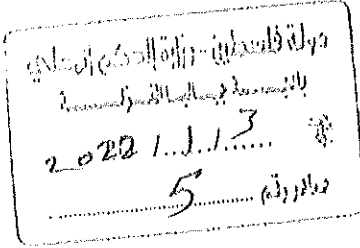 دولة فلسطين - وزارة الحكم المحلي
بلديـــة
2022 / 1 / 3
صادر رقم 5